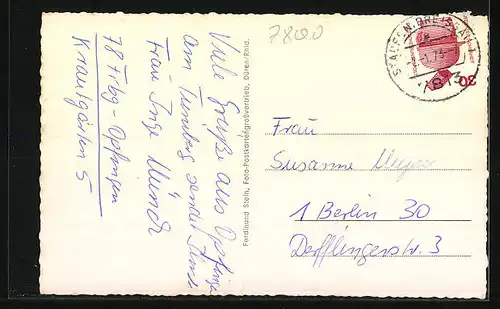 78000
STAUFEN, BREISGAU
7813
30
Viele Grüße aus Opfingen
am Tuniberg sendet Ihnen
Frau Inge Münch
78 Frbg-Opfingen
Krautgärten 5
Ferdinand Stein, Foto-Postkartengroßvertrieb, Düren/Rhld.
Frau
Susanne Meyer
1 Berlin 30
Derfflingerstr. 3